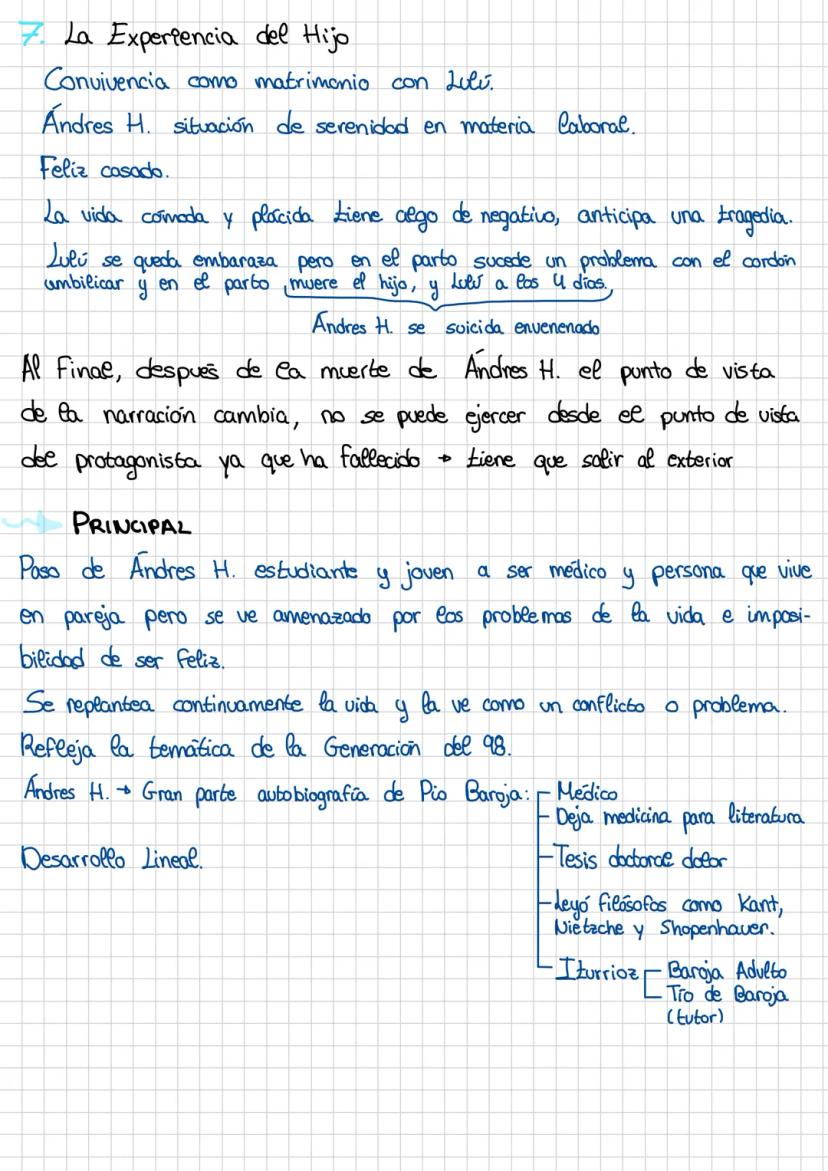 7. La Experiencia del Hijo
Convivencia como matrimonio con Lulú.
Ándres H. situación de serenidad en materia laboral.
Feliz casado.
La vida cómoda y plácida tiene algo de negativo, anticipa una tragedia.
Lulú se queda embaraza pero en el parto sucede un problema con el cordón
umbilicar y en el parto muere el hijo, y Lulú a los 4 días.
Ándres H. se suicida envenenado
Al final, después de la muerte de Ándres H. el punto de vista
de la narración cambia, no se puede ejercer desde el punto de vista
del protagonista ya que ha fallecido → tiene que salir al exterior
PRINCIPAL
Paso de Ándres H. estudiante y joven a ser médico y persona que vive
en pareja pero se ve amenazado por los problemas de la vida e imposi-
bilidad de ser feliz.
Se replantea continuamente la vida y la ve como un conflicto o problema.
Refleja la temática de la Generación del 98.
Ándres H. → Gran parte autobiografía de Pío Baroja: - Médico
- Deja medicina para literatura
Desarrollo Lineal.
- Tesis doctoral dolor
- Leyó filósofos como Kant,
Nietzche y Shopenhauer.
- Iturrioz - Baroja Adulto
- Tío de Baroja
(tutor)